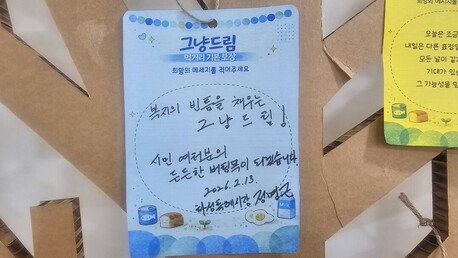 그냥드림
먹거리 기본보장
희망의 메세지를 적어주세요
복지의 빈틈을 채우는
그냥드림!
시민 여러분의
든든한 버팀목이 되겠습니다.
2026. 2. 13.
화성특례시장 정명근
오늘은 조금
내일은 다른 표정일
모든 날이 같지
기대가 있
그 가능성을 믿